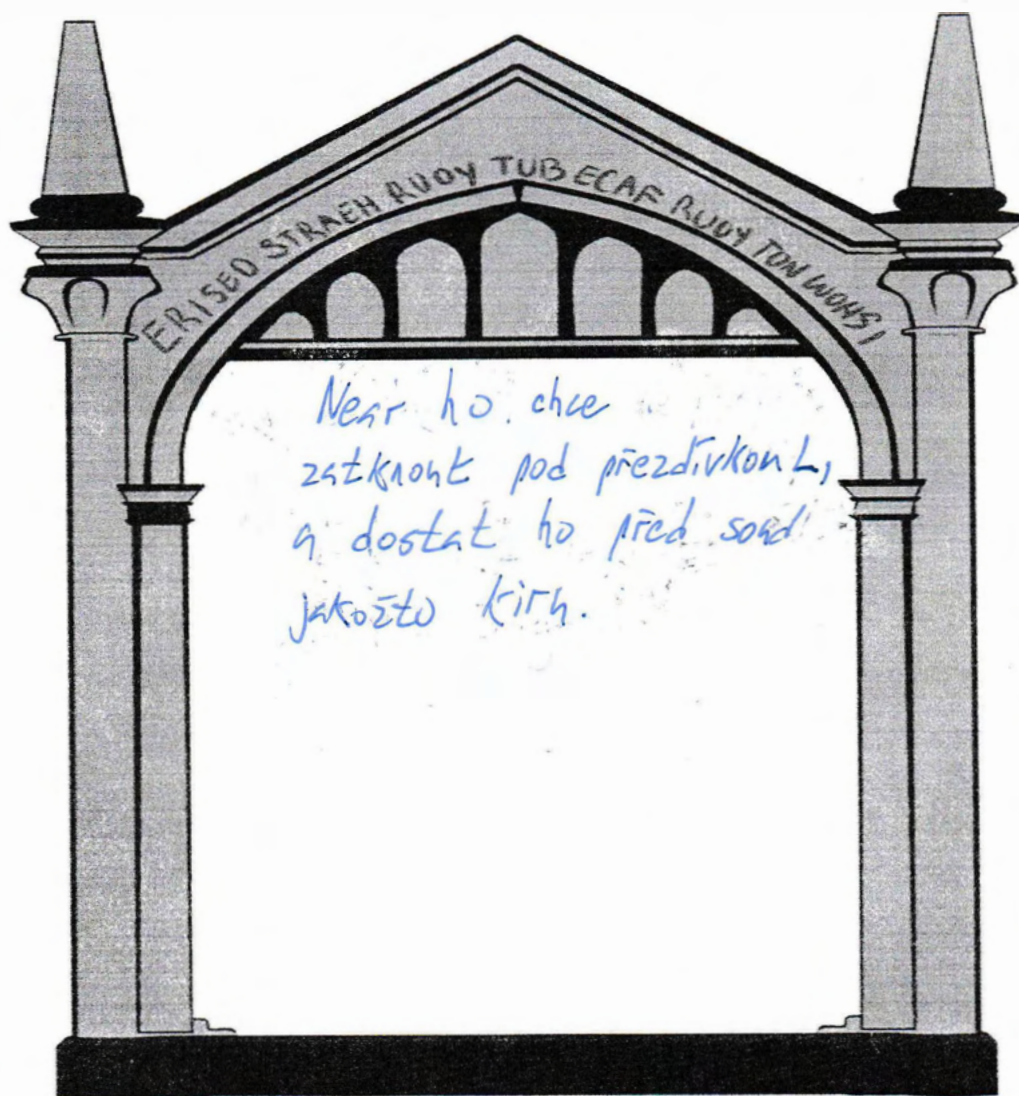 ERISED STRAEH RUOY TUB ECAF RUOY TON WOHSI
Near ho chce
zatknout pod přezdívkou L,
a dostat ho před soud
jakožto kira.